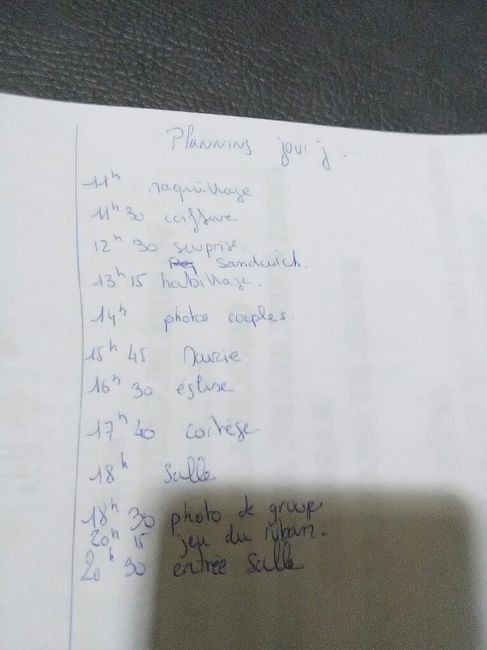 Planning jour j.
11h maquillage
11h30 coiffure.
12h30 surprise.
Sandwich.
13h15 habillage.
14h photos couples.
15h45 Mairie
16h30 église
17h40 cortège
18h Salle
18h30 photo de groupe
20h15 jeu du ruban.
20h30 entrée Salle